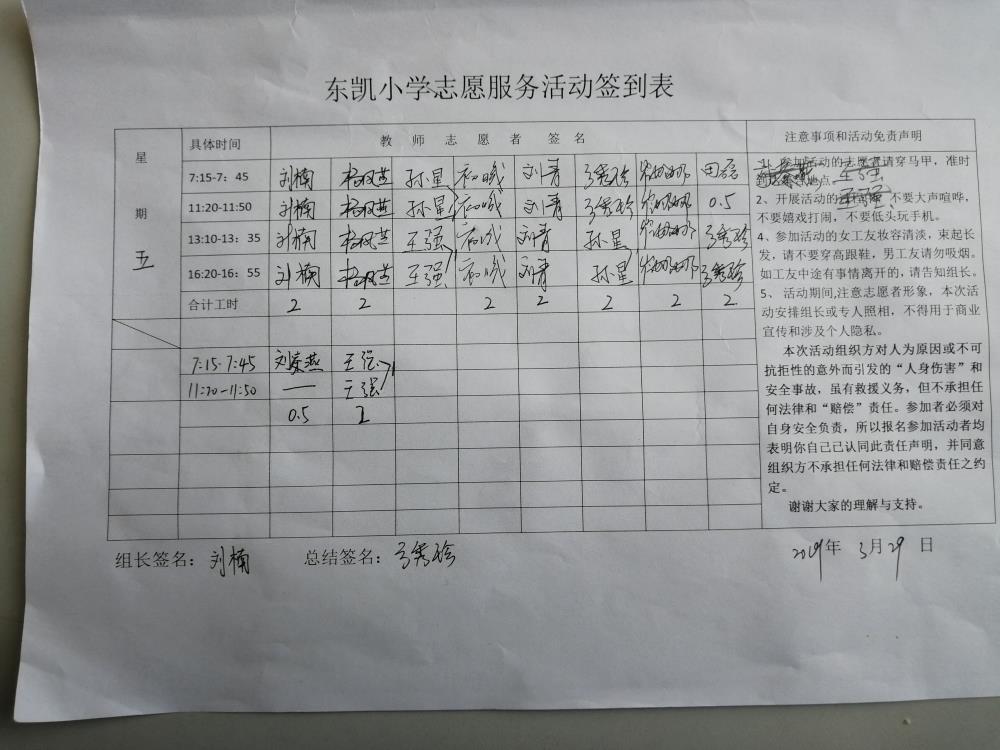 东凯小学志愿服务活动签到表
星期五
具体时间 教师志愿者签名 注意事项和活动免责声明
7:15-7：45 刘楠 杨凤芝 孙星 刘青
11:20-11:50 刘楠 杨凤芝 孙星 刘青 0.5
13:10-13：35 刘楠 杨凤芝 王强 刘青 孙星
16:20-16：55 刘楠 杨凤芝 王强 刘青 孙星
合计工时 2 2 2 2 2 2 2
7:15-7:45 王强
11:20-11:50 — 王强
0.5 1
王强
王强
1、参加活动的志愿者请穿马甲，准时
地点
2、开展活动的 不要大声喧哗，
不要嬉戏打闹，不要低头玩手机。
4、参加活动的女工友妆容清淡，束起长
发，请不要穿高跟鞋，男工友请勿吸烟。
如工友中途有事情离开的，请告知组长。
5、 活动期间,注意志愿者形象，本次活
动安排组长或专人照相，不得用于商业
宣传和涉及个人隐私。
本次活动组织方对人为原因或不可
抗拒性的意外而引发的“人身伤害”和
安全事故，虽有救援义务，但不承担任
何法律和“赔偿”责任。参加者必须对
自身安全负责，所以报名参加活动者均
表明你自己已认同此责任声明，并同意
组织方不承担任何法律和赔偿责任之约
定。
谢谢大家的理解与支持。
组长签名： 刘楠 总结签名： 2019年 3月29日